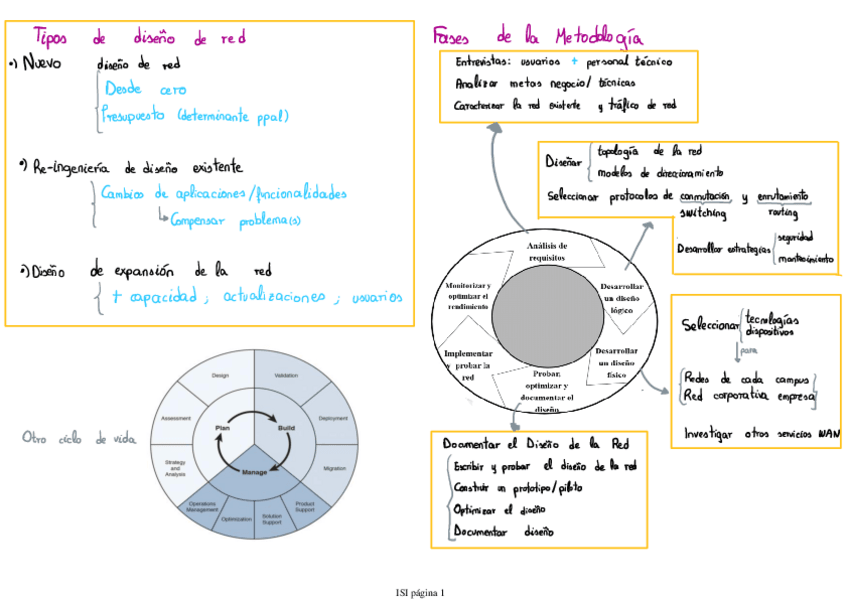 Tipos de diseño de red
•) Nuevo diseño de red
Desde cero
Presupuesto (determinante ppal)
•) Re-ingeniería de diseño existente
Cambios de aplicaciones/funcionalidades
Compensar problema(s)
•) Diseño de expansión de la red
+ capacidad ; actualizaciones ; usuarios
Otro ciclo de vida
Design
Validation
Assessment
Deployment
Plan
Build
Strategy
and
Analysis
Migration
Manage
Operations
Management
Optimization
Solution
Support
Product
Support
Fases de la Metodología
Entrevistas: usuarios + personal técnico
Analizar metas negocio/ técnicas
Caracterizar la red existente y tráfico de red
Diseñar
topología de la red
modelos de direccionamiento
Seleccionar protocolos de conmutación y enrutamiento
switching routing
Desarrollar estrategias
seguridad
mantenimiento
Análisis de
requisitos
Desarrollar
un diseño
lógico
Desarrollar
un diseño
físico
Probar,
optimizar y
documentar el
diseño
Implementar
y probar la
red
Monitorizar y
optimizar el
rendimiento
Seleccionar
tecnologías
dispositivos
para
Redes de cada campus
Red corporativa empresa
Investigar otros servicios WAN
Documentar el Diseño de la Red
Escribir y probar el diseño de la red
Construir un prototipo/piloto
Optimizar el diseño
Documentar diseño
ISI página 1